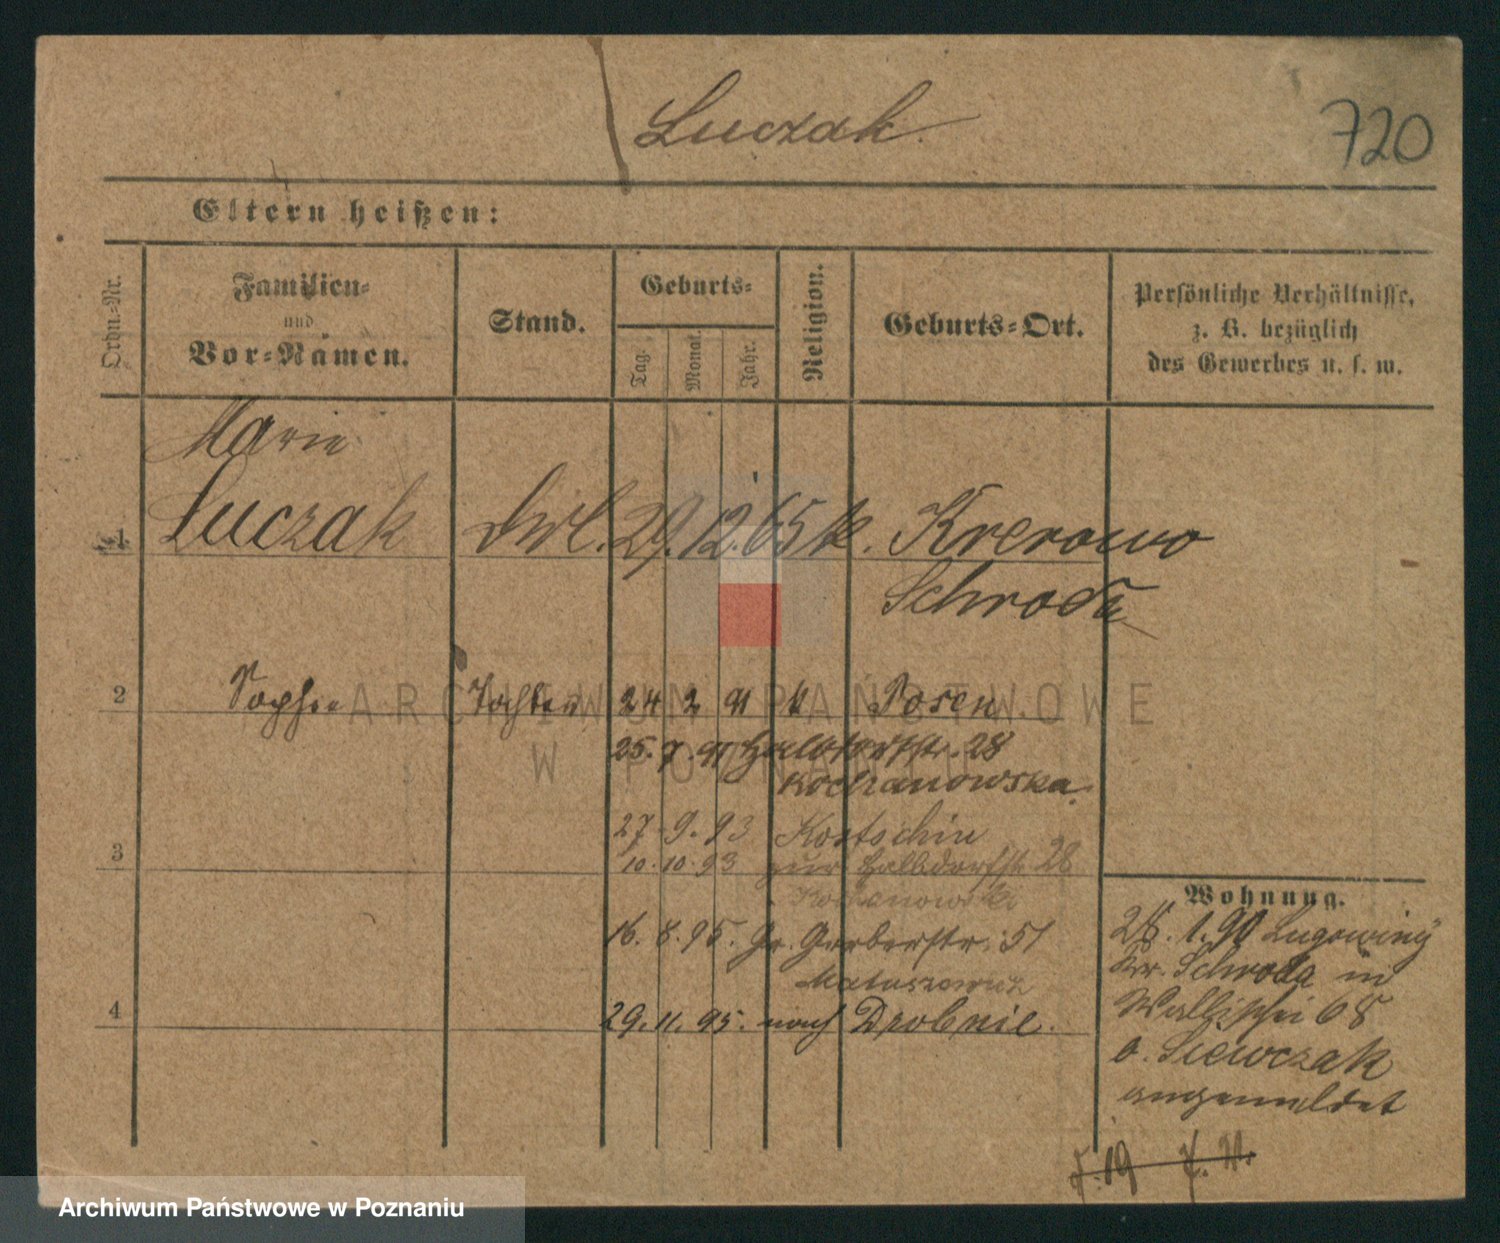 Luczak.
720
Eltern heißen:
Ordn.-Nr.
Familien-
und
Vor-Namen.
Stand.
Geburts-
Tag.
Monat.
Jahr.
Religion.
Geburts-Ort.
Persönliche Verhältnisse,
z. B. bezüglich
des Gewerbes u. s. w.
Marie
1 Luczak 29. 12. 65 k. Krerowo
Schroda
2 Sophie Tochter 24 2 91 k Posen
25. 7. 91 Halbdorfstr. 28
Kochanowska.
27. 9. 93 Kostschin
3
10. 10. 93 zur Halbdorfstr 28
Kochanowska
16. 8. 95. Gr. Gerberstr. 51
Matuszewicz
4 29. 11. 95. nach Drobnie.
Wohnung.
28. 1. 90 Lugowiny
Kr. Schroda in
Wallischei 68
b. Siewczak
angemeldet
ARCHIWUM PAŃSTWOWE
W POZNANIU
Archiwum Państwowe w Poznaniu